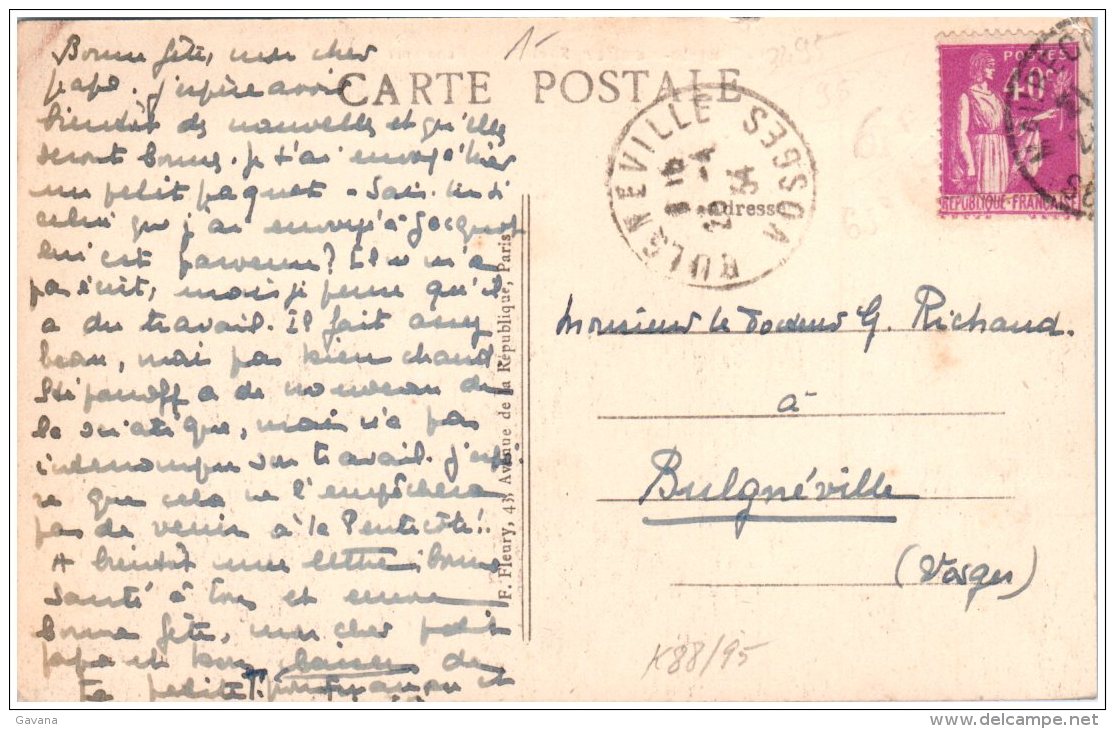 1-
3495
CARTE POSTALE
Bonne fête, mon cher
papa. J'espère avoir
bientôt de nouvelles et qu'elles
seront bonnes. Je t'ai envoyé hier
un petit paquet - Sais-tu si
celui que j'ai envoyé à Jacquot
lui est parvenu? Il n m'a
pas écrit, mais je pense qu'il
a du travail. Il fait assez
beau, mais pas bien chaud
Stépanoff a de nouveau de
la sciatique, mais n'a pas
interrompu son travail. J'espè-
re que cela ne l'empêchera
pas de venir à la Pentecôte!.
A bientôt une lettre, bonne
santé à tous et encore
bonne fête, mon cher petit
papa et bons baisers de
ta petite
F. Fleury, 43, Avenue de la République, Paris
BULGNEVILLE VOSGES
Adresse
POSTES
40c
REPUBLIQUE-FRANÇAISE
Monsieur le Docteur G. Richaud.
à
Bulgnéville
(Vosges)
K88/95
Gavana
delcampe.net